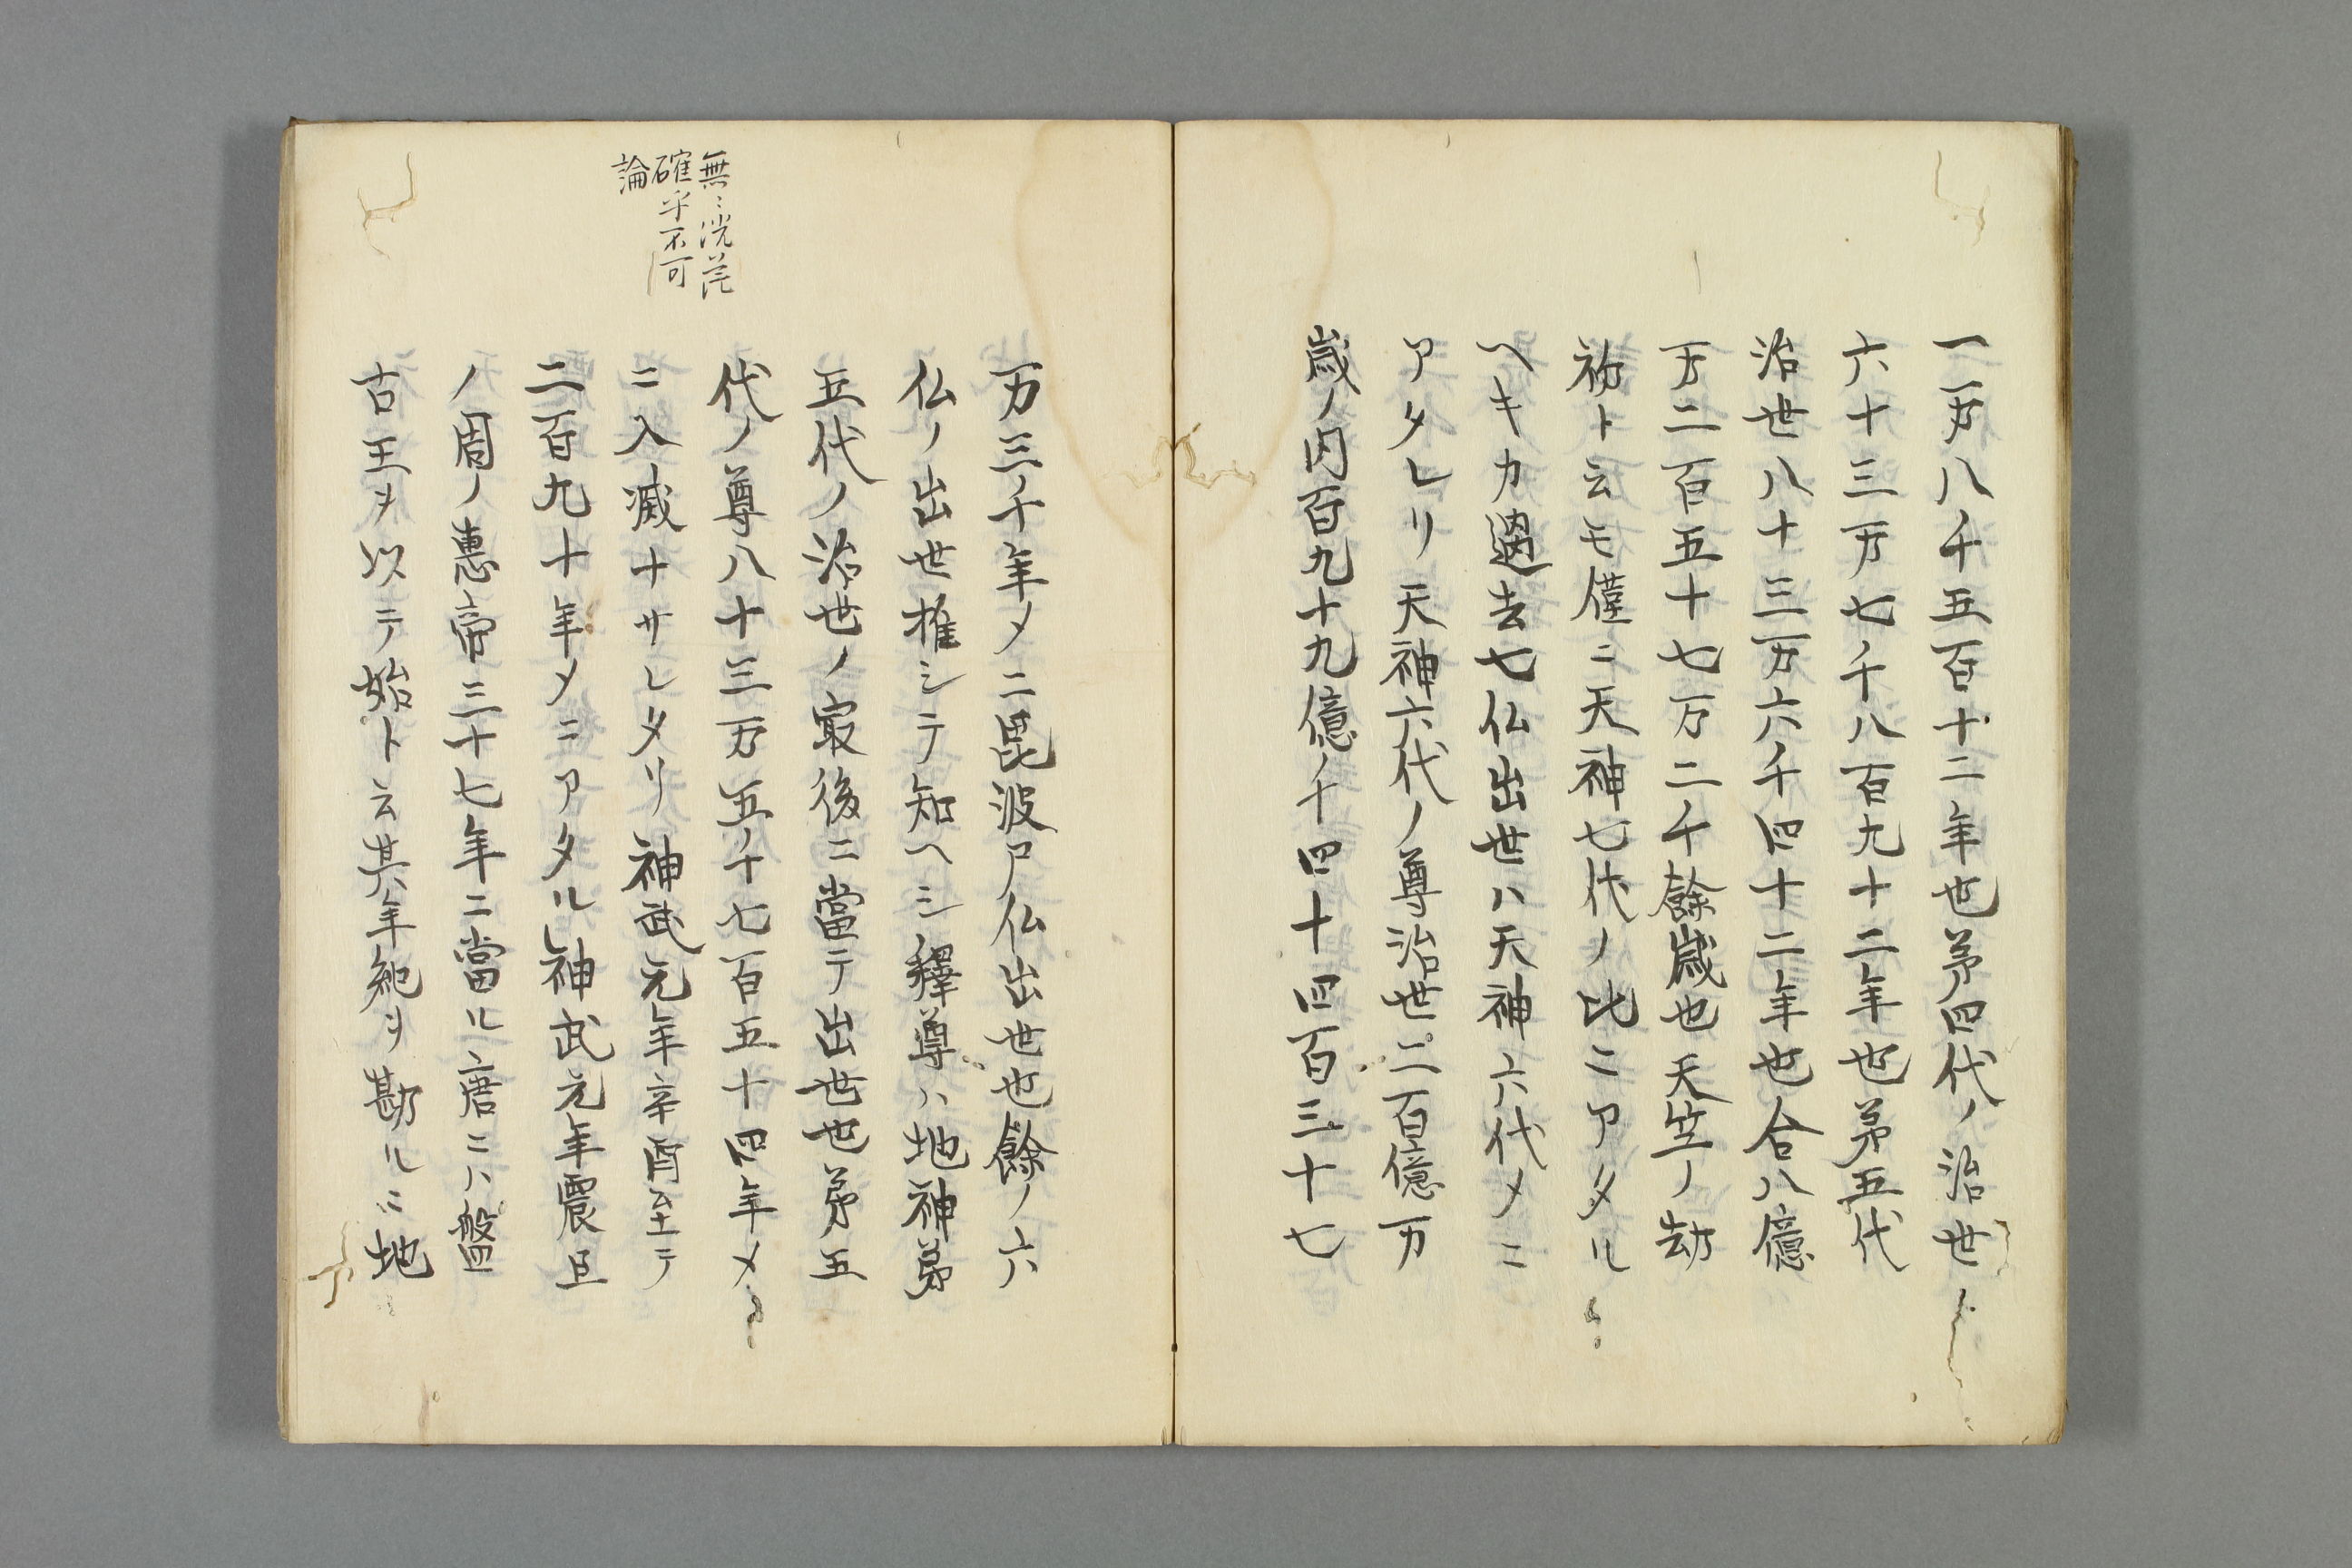 一万八千五百十二年也第四代ノ治世
六十三万七千八百九十二年也第五代
治世八十三万六千四十二年也合八億
万二百五十七万二千餘歳也天竺ノ劫
祐ト云モ僅ニ天神七代ノ比ニアタル
ヘキカ過去七仏出世ハ天神六代メニ
アタレリ天神六代ノ尊治世二百億万
歳ノ内百九十九億千四十四百三十七
万三千年メニ毘波尸仏出世也餘ノ六
仏ノ出世推シテ知ヘシ釋尊ハ地神第
五代ノ治世ノ最後ニ當テ出世也第五
代ノ尊八十三万五千七百五十四年メ
ニ入滅ナサレタリ神武元年辛酉至テ
二百九十年メニアタル神武元年震旦
ノ周ノ惠帝三十七年ニ當ル唐ニハ盤
古王ヲ以テ始ト云其年紀ヲ勘ルニ地
無〻洸茫
確乎不可
論